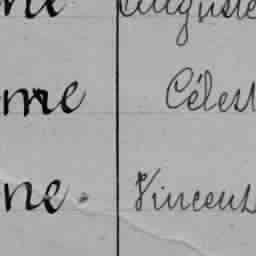 me Auguste
me Célest
ne. Vincent